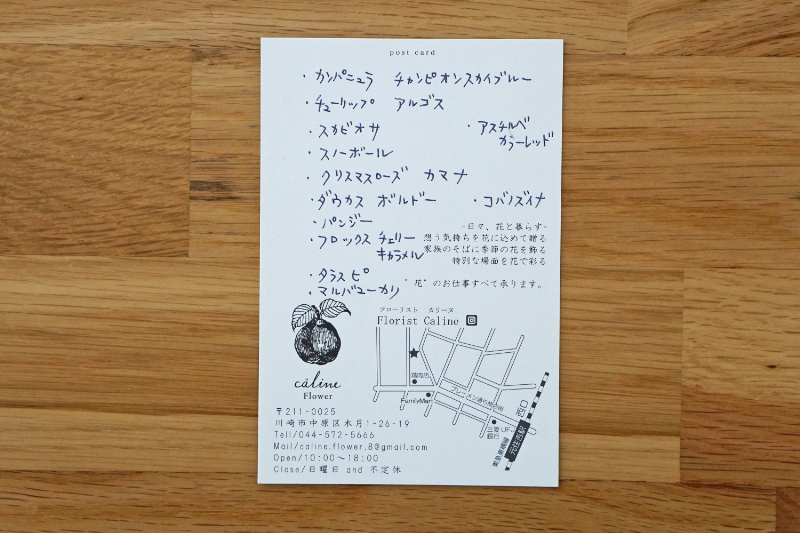 post card
・カンパニュラ チャンピオンスカイブルー
・チューリップ アルゴス
・スカビオサ
・アスチルベ
カラーレッド
・スノーボール
・クリスマスローズ カマナ
・ダウカス ボルドー
・コバノズイナ
・パンジー
・フロックス チェリー
キャラメル
・タラスピ
・マルバユーカリ
-日々、花と暮らす-
想う気持ちを花に込めて贈る
家族のそばに季節の花を飾る
特別な場面を花で彩る
"花"のお仕事すべて承ります。
フローリスト カリーヌ
Florist Caline
câline
Flower
〒211-0025
川崎市中原区木月1-26-19
Tell/044-572-5666
Mail/caline.flower.8@gmail.com
Open/10:00～18:00
Close/日曜日 and 不定休
FamilyMart
ブレーメン通り商店街
三菱UFJ
銀行
西口
元住吉駅
東急東横線